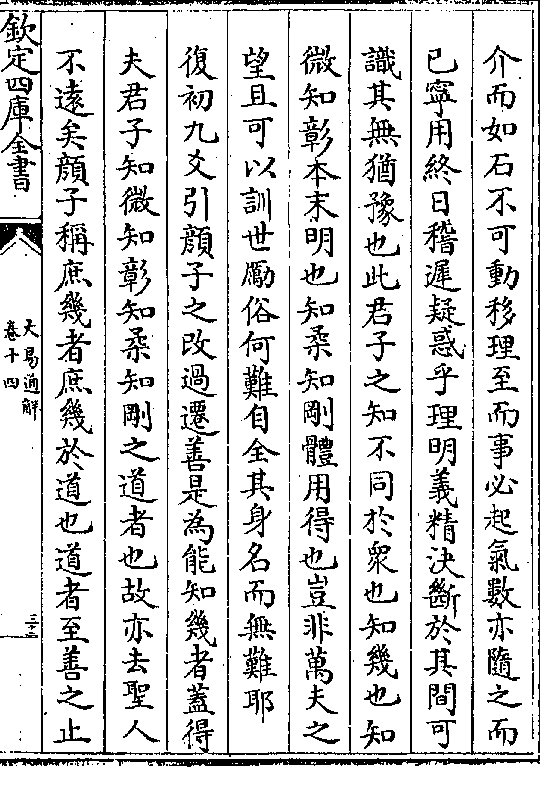 介而如石不可動移理至而事必起氣數亦隨之而
已寧用終日稽遲疑惑乎理明義精決斷於其間可
識其無猶豫也此君子之知不同於衆也知幾也知
微知彰本末明也知柔知剛體用得也豈非萬夫之
望且可以訓世勵俗何難自全其身名而無難耶
復初九爻引顔子之改過遷善是為能知幾者蓋得
夫君子知微知彰知柔知剛之道者也故亦去聖人
不遠矣顔子稱庶幾者庶幾於道也道者至善之止
欽定四庫全書
大易通解
卷十四
三十三